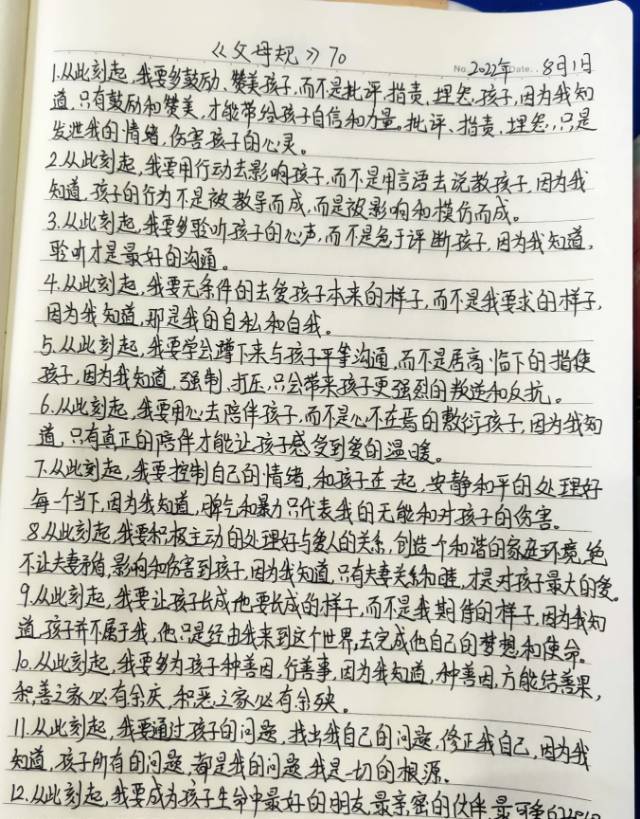 《父母规》70
No. 2022年 Date. 8月1日
1.从此刻起,我要多鼓励、赞美孩子,而不是批评、指责、埋怨孩子,因为我知
道,只有鼓励和赞美,才能带给孩子自信和力量。批评、指责、埋怨,只是
发泄我的情绪,伤害孩子的心灵。
2.从此刻起,我要用行动去影响孩子,而不是用言语去说教孩子,因为我
知道,孩子的行为不是被教导而成,而是被影响和模仿而成。
3.从此刻起,我要多聆听孩子的心声,而不是急于评断孩子,因为我知道,
聆听才是最好的沟通。
4.从此刻起,我要无条件的去爱孩子本来的样子,而不是我要求的样子,
因为我知道,那是我的自私和自我。
5.从此刻起,我要学会蹲下来与孩子平等沟通,而不是居高临下的指使
孩子,因为我知道,强制、打压,只会带来孩子更强烈的叛逆和反抗。
6.从此刻起,我要用心去陪伴孩子,而不是心不在焉的敷衍孩子,因为我知
道,只有真正的陪伴才能让孩子感受到爱的温暖。
7.从此刻起,我要控制自己的情绪,和孩子在一起,安静和平的处理好
每一个当下,因为我知道,脾气和暴力只代表我的无能和对孩子的伤害。
8.从此刻起,我要积极主动的处理好与爱人的关系,创造一个和谐的家庭环境,绝
不让夫妻矛盾,影响和伤害到孩子,因为我知道,只有夫妻关系和睦,才是对孩子最大的爱。
9.从此刻起,我要让孩子长成他要长成的样子,而不是我期待的样子,因为我知
道,孩子并不属于我,他只是经由我来到这个世界,去完成他自己的梦想和使命。
10.从此刻起,我要多为孩子种善因,行善事,因为我知道,种善因,方能结善果,
积善之家必有余庆,积恶之家必有余殃。
11.从此刻起,我要通过孩子的问题,找出我自己的问题,修正我自己,因为我
知道,孩子所有的问题,都是我的问题,我是一切的根源。
12.从此刻起,我要成为孩子生命中最好的朋友,最亲密的伙伴,最可